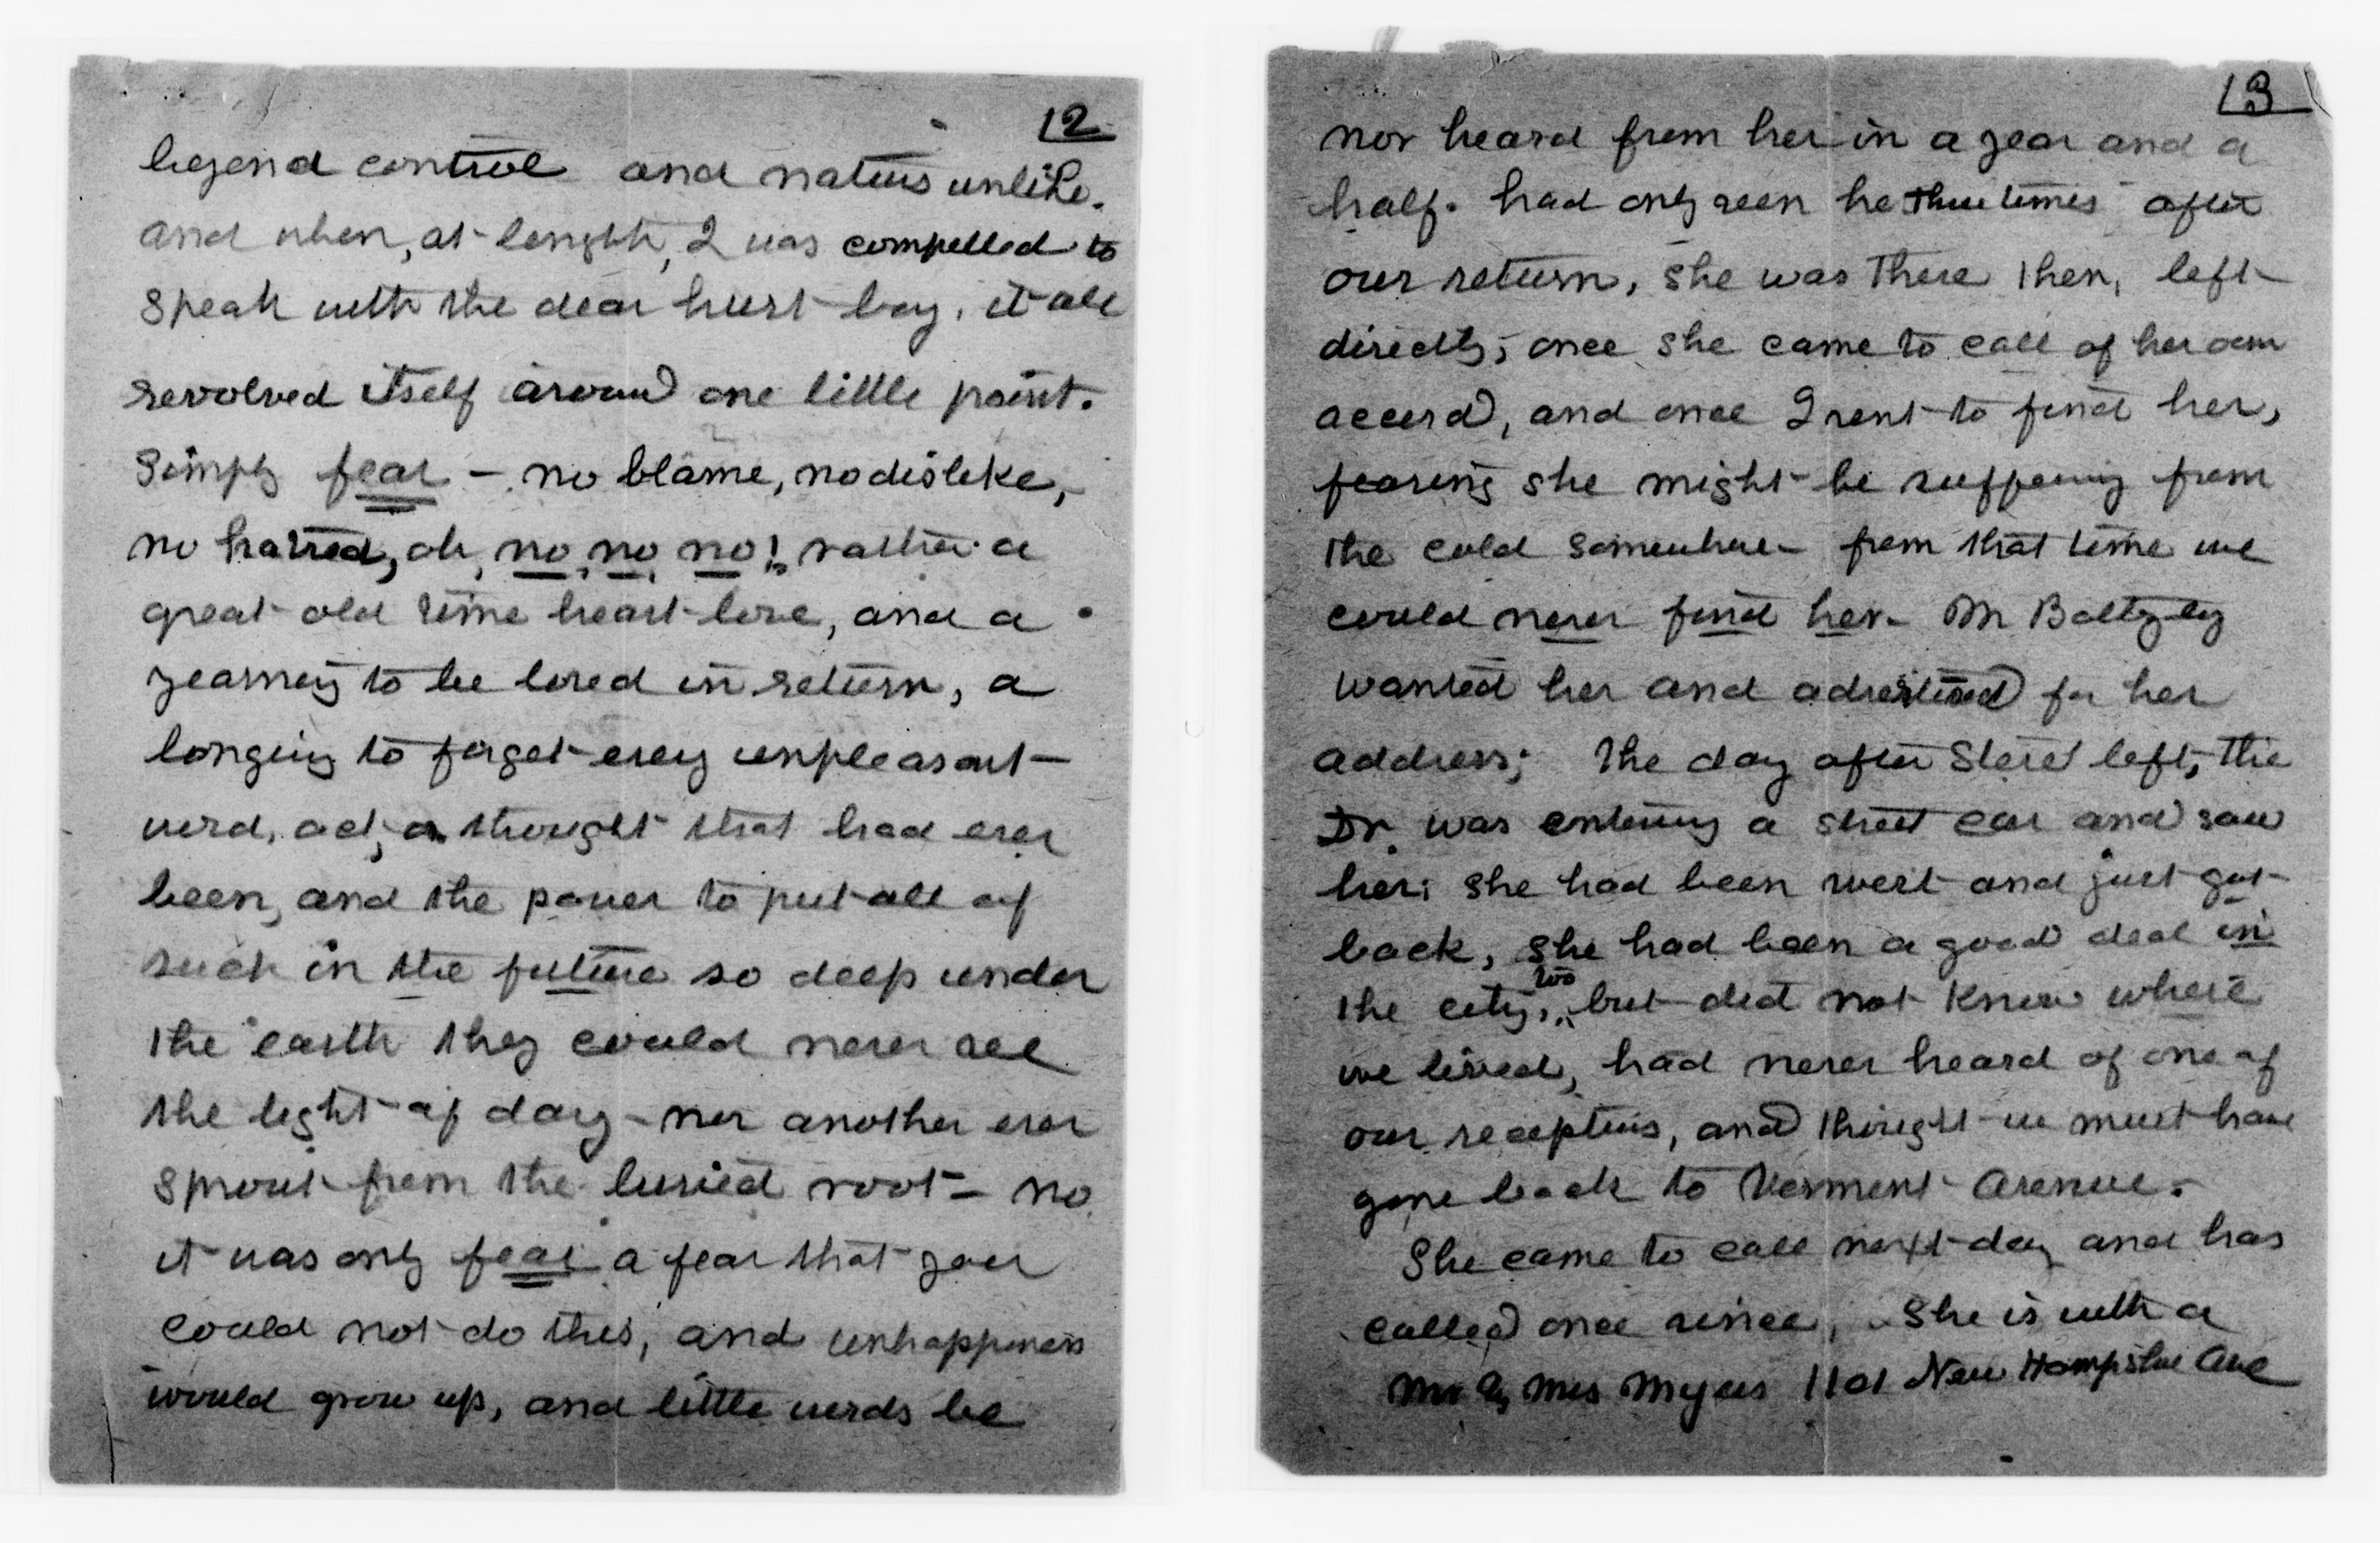 12
beyond control and natures unlike.
and when, at length, I was compelled to
speak with the dear hurt boy, it all
revolved itself around one little point.
Simply fear — no blame, no dislike,
no hatred, oh, no, no, no! rather a
great old time heart love, and a
yearning to be loved in return, a
longing to forget every unpleasant
word, act, or thought that had ever
been, and the power to put all of
such in the future so deep under
the earth they could never see
the light of day - nor another ever
sprout from the buried root - no
it was only fear a fear that you
could not do this, and unhappiness
would grow up, and little words be
13
nor heard from her in a year and a
half. had only seen he three times after
our return, she was there then, left
directly; once she came to call of her own
accord, and once I went to find her,
fearing she might be suffering from
the cold somewhere - from that time we
could never find her. Mr Baltzley
wanted her and advertised for her
address; The day after Steve left, the
Dr. was entering a street car and saw
her; she had been west and just got
back, she had been a good deal in
the city, too but did not know where
we lived, had never heard of one of
our receptions, and thought we must have
gone back to Vermont Avenue.
She came to call next day and has
called once since, She is with a
Mr & Mrs Myers 1101 New Hampshire Ave